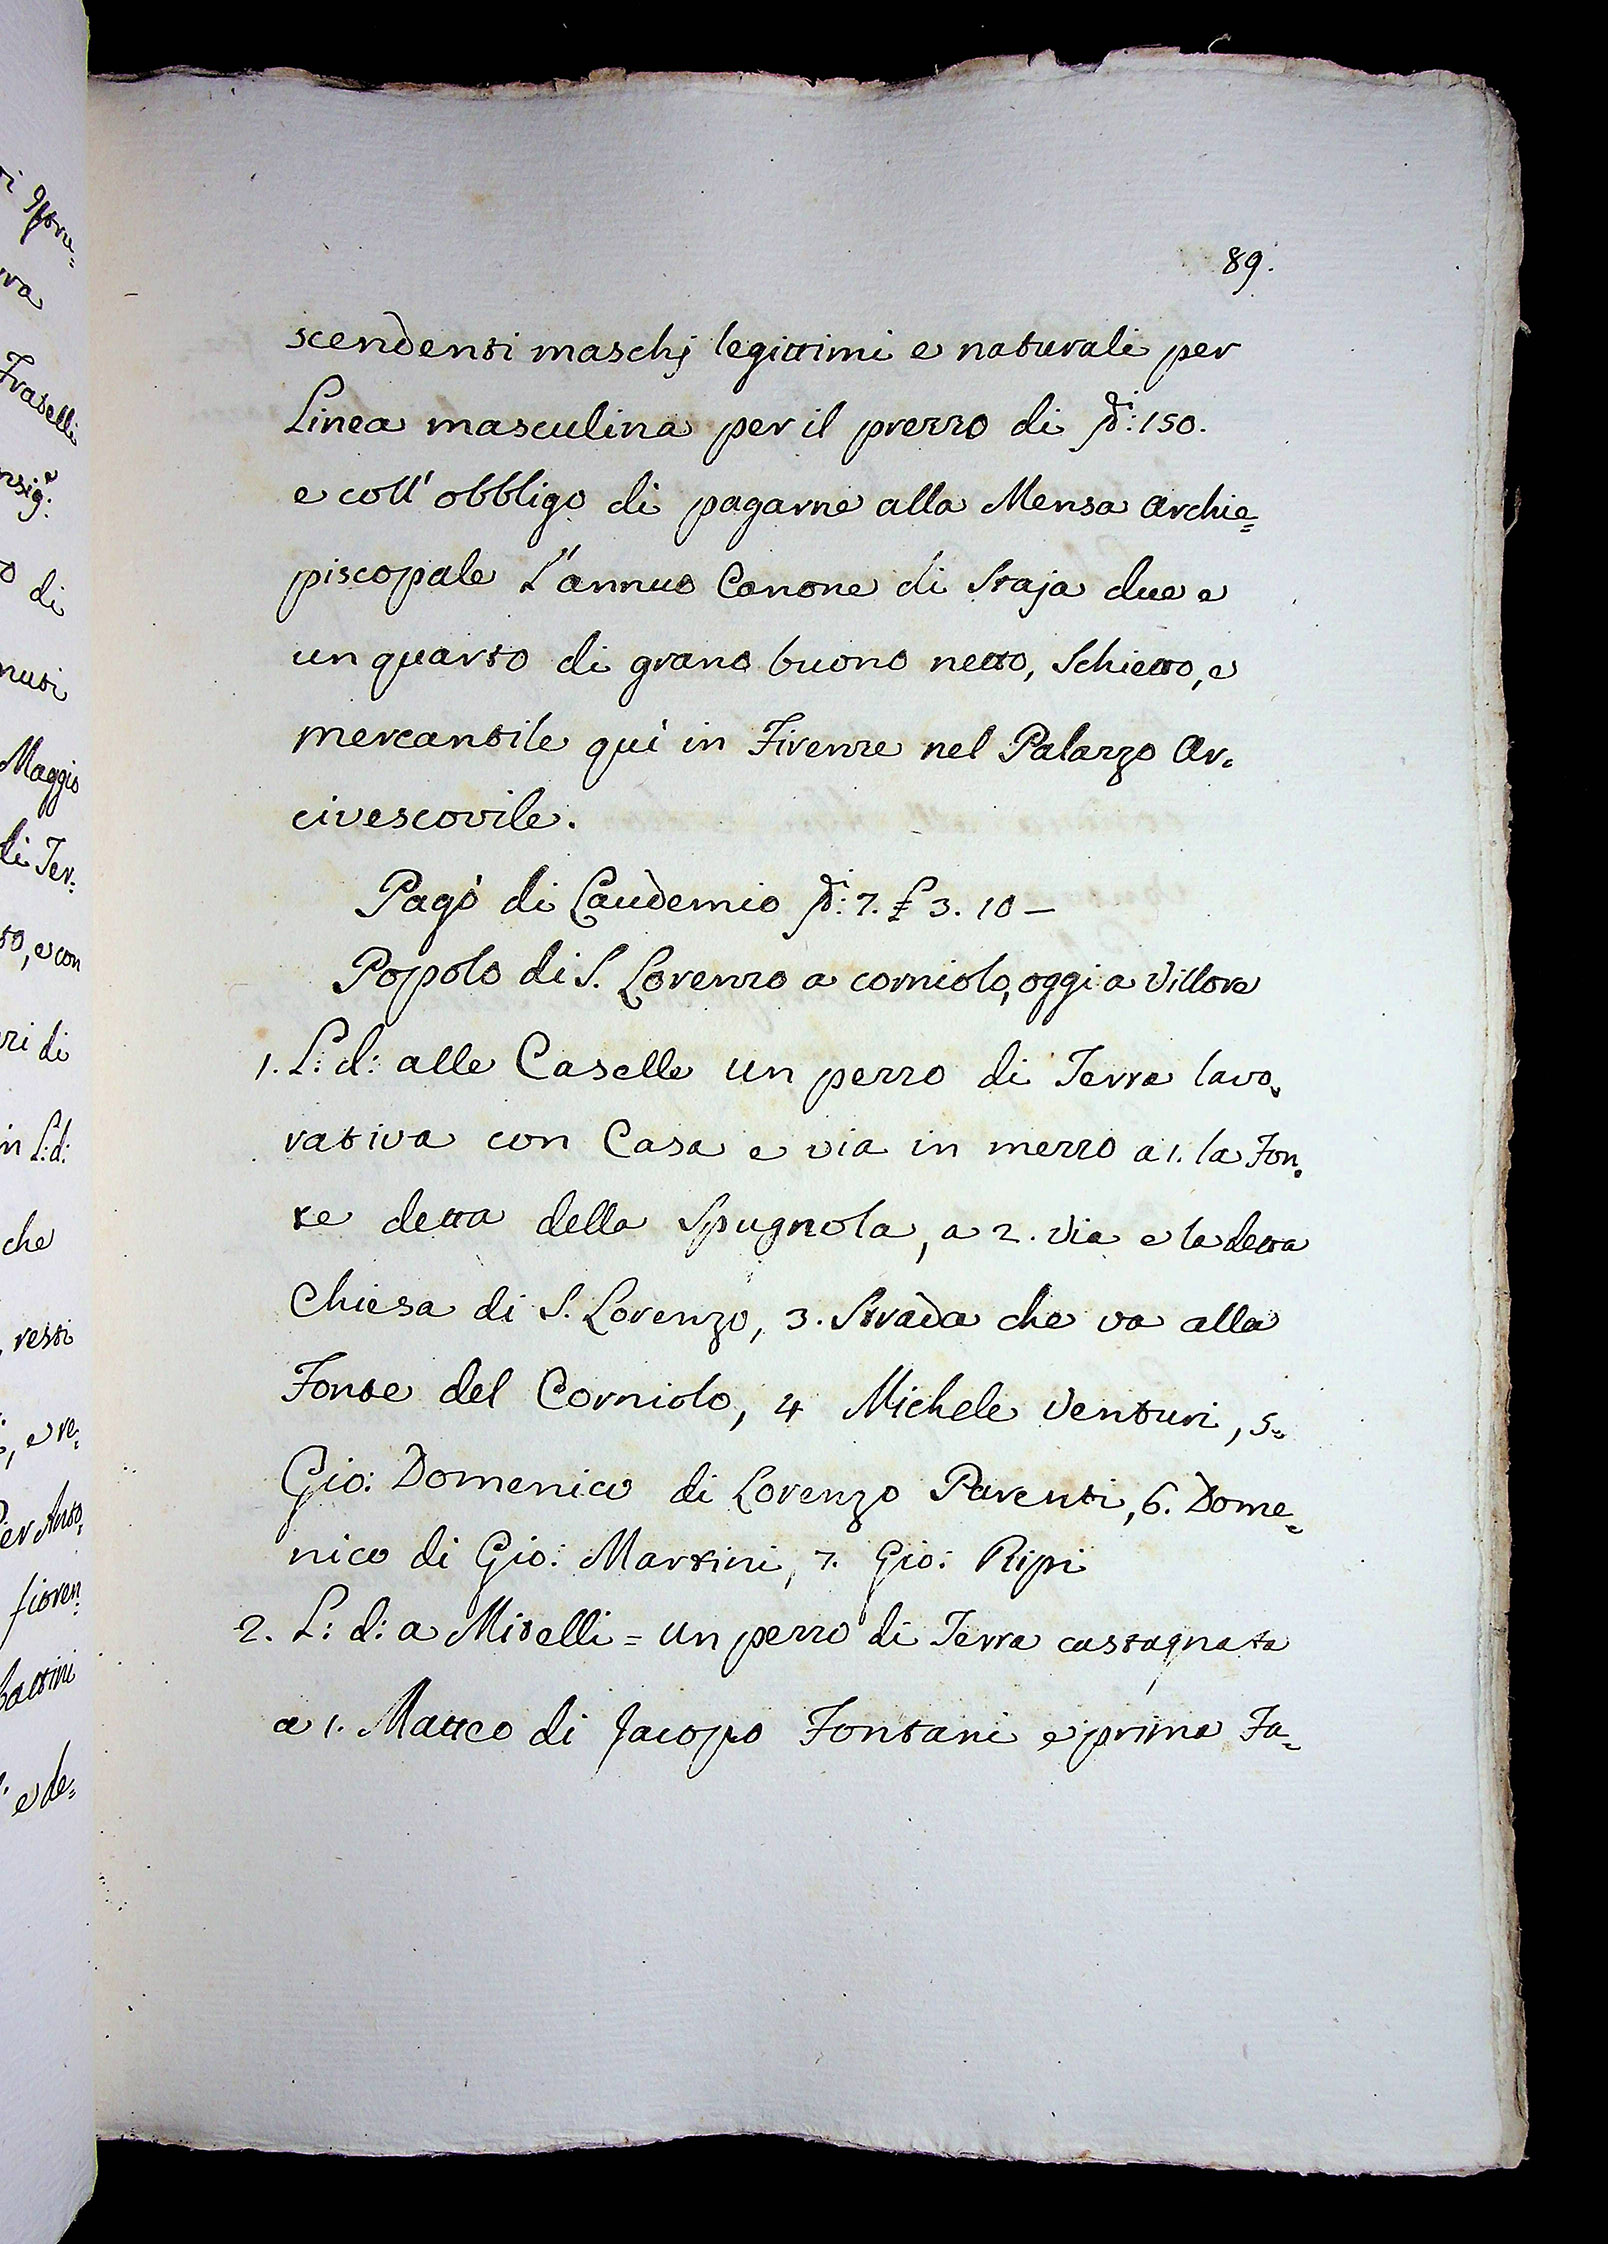 89.
scendenti maschj legittimi e naturali per
Linea masculina per il prezzo di 150.
e coll' obbligo di pagarne alla Mensa Archie=
piscopale L'annuo Canone di Staja due e
un quarto di grano buono netto, Schietto, e
mercantile quì in Firenze nel Palazzo Ar=
civescovile.
Pagò di Laudemio 7. £ 3. 10 —
Popolo di S. Lorenzo a corniolo, oggi a Villore
1. L: d: alle Caselle un pezzo di Terra lavo=
rativa con Casa e via in mezzo a 1. la Fon=
te detta della Spugnola, a 2. Via e la detta
Chiesa di S. Lorenzo, 3. Strada che va alla
Fonte del Corniolo, 4 Michele Venturi, 5=
Gio: Domenico di Lorenzo Parenti, 6. Dome=
nico di Gio: Martini, 7. Gio: Ripi
2. L: d: a Mitelli = un pezzo di Terra castagnata
a 1. Matteo di Jacopo Fontani e prima Fa=
va
Fratelli
di
nuti
Maggio
di Ter=
to, e con
ri di
in L: d:
che
resti
, e re=
Pier Anto=
fioren=
battini
e de=